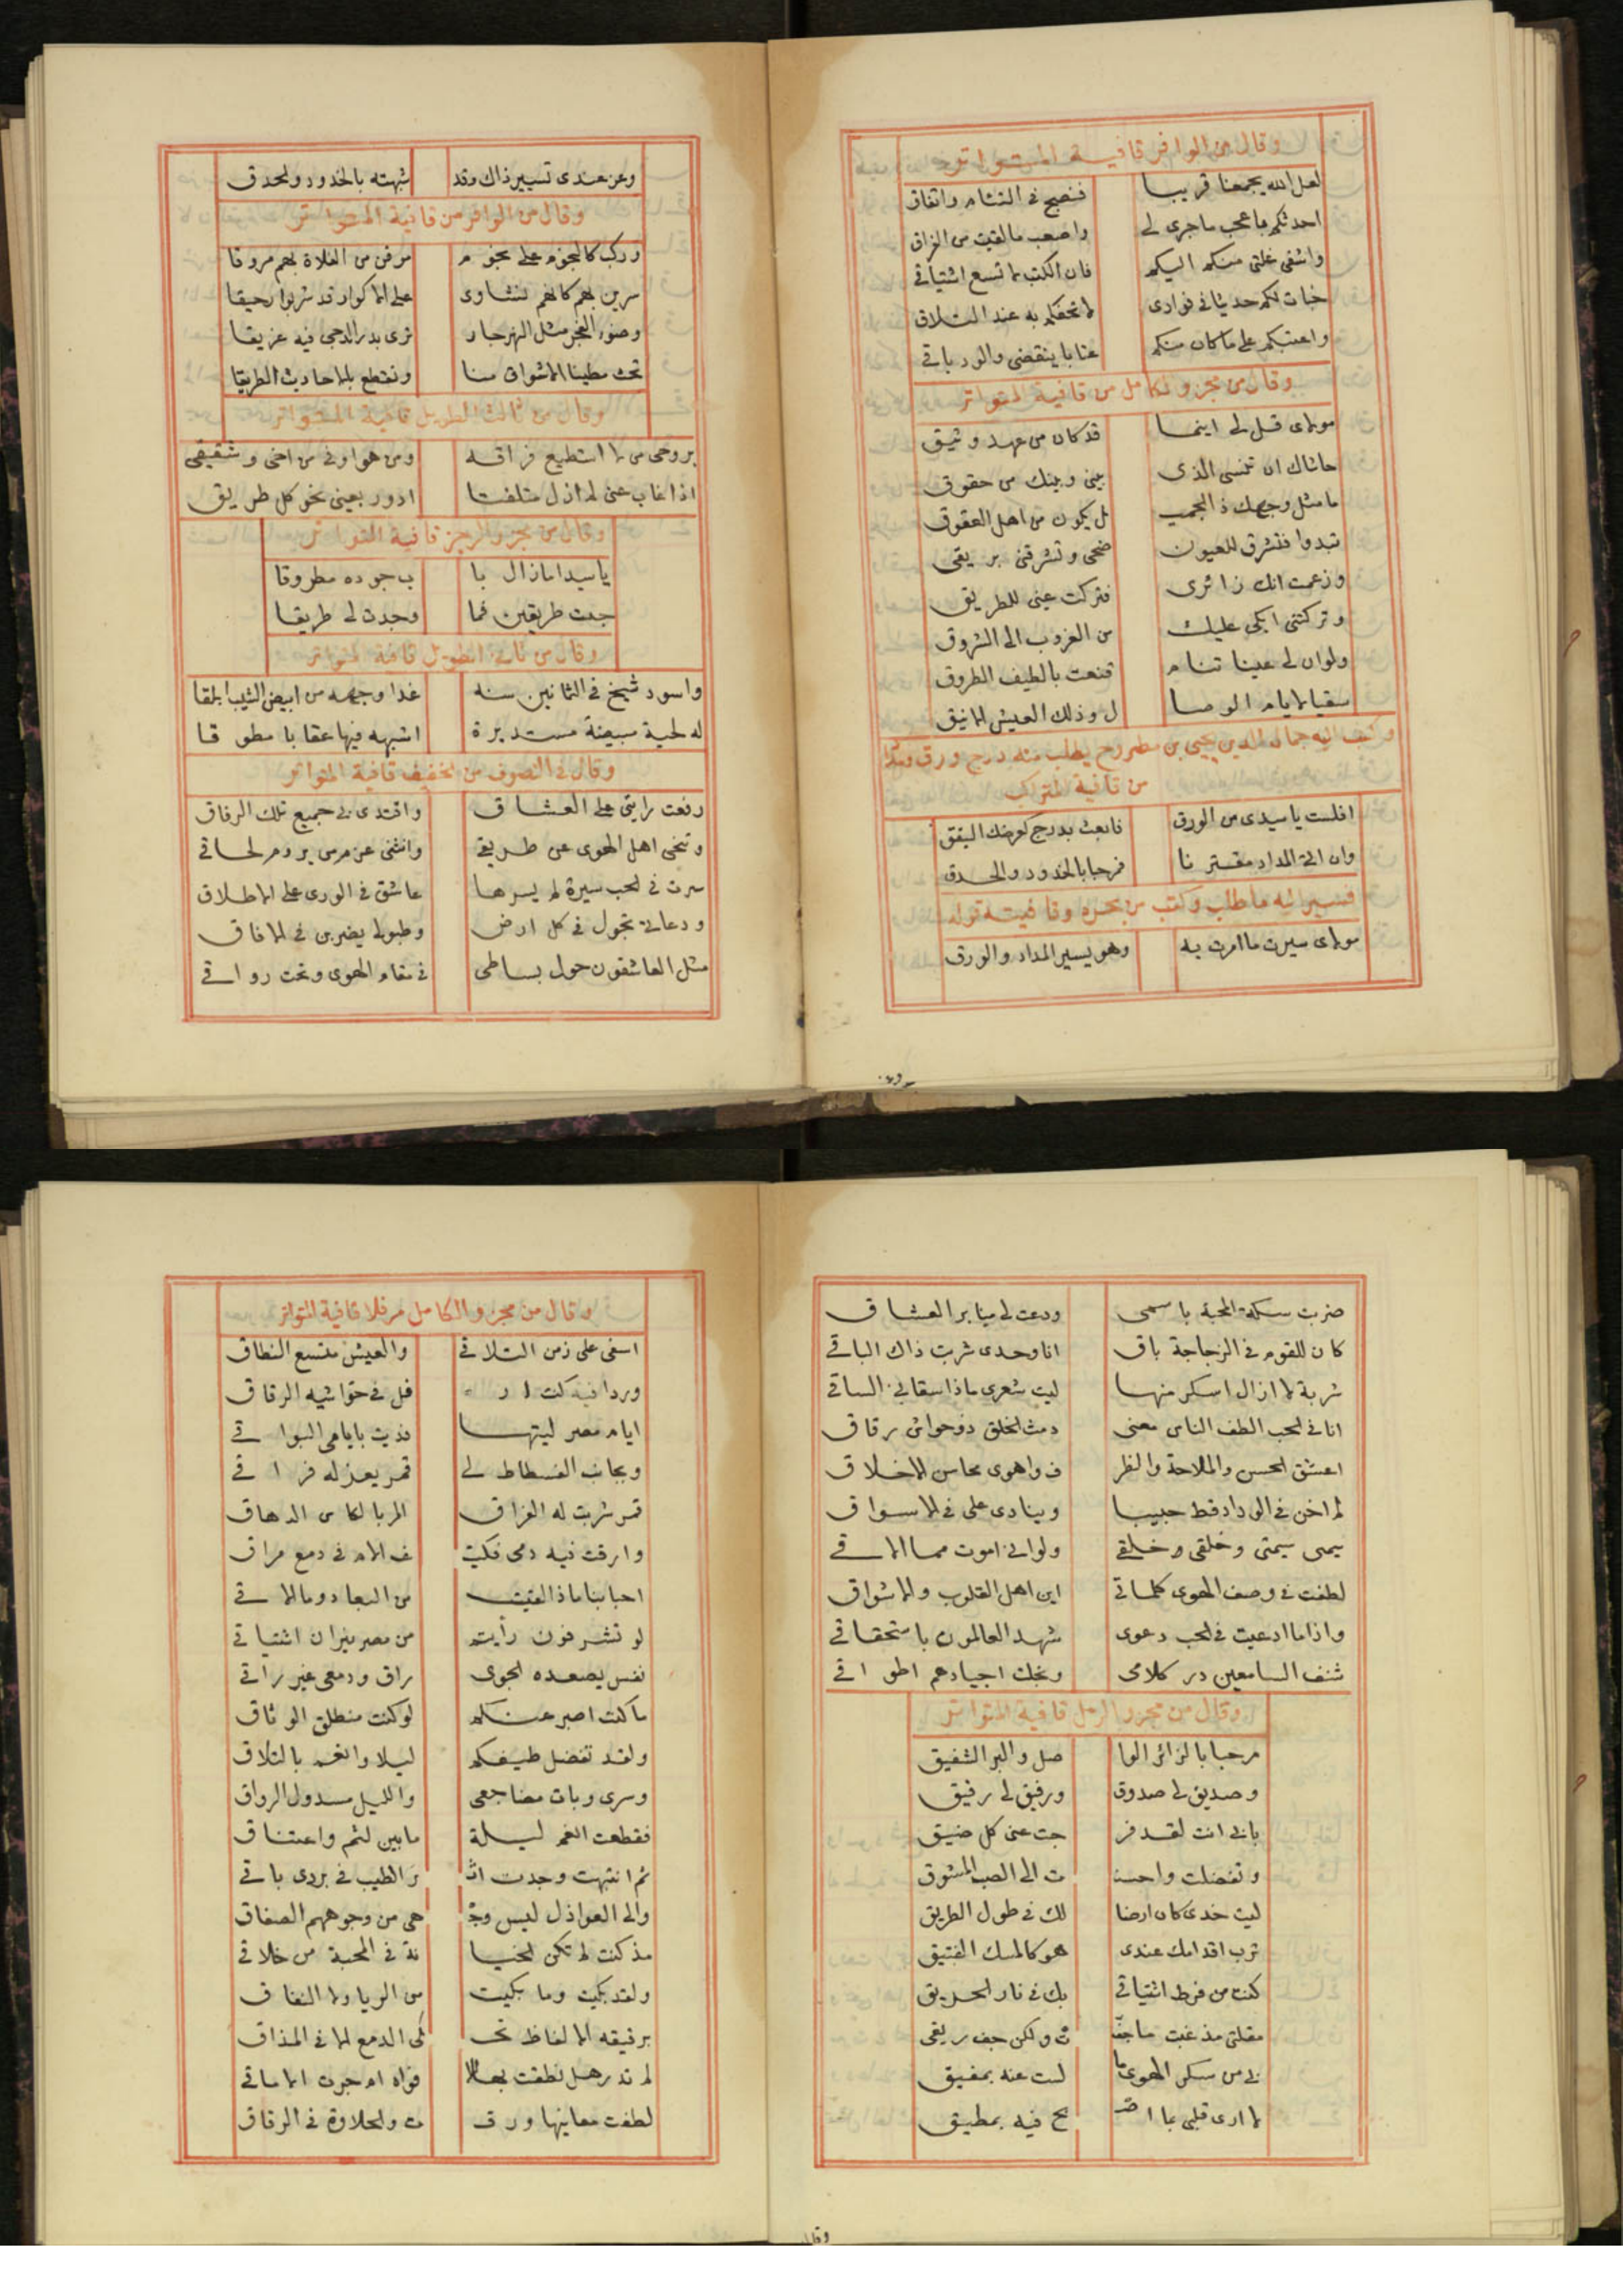 وقال من الوافر قافية المتواتر
لعل الله يجمعنا قريبا فنصبح في التئام واتفاق
احدثكم باعجب ماجرى لي واصعب مالقيت من الفراق
واشفى غلتى منكم اليكم فان الكتب لا تسع اشتياقي
خبات لكم حديثا في فوادى لاتحفكم به عند التلاق
واعتبكم على ماكان منكم عتابا ينقضى والود باقي
وقال من مجزو الكامل من قافية المتواتر
مولاى قل لى اينما قد كان من عهد وثيق
حاشاك ان تنسى الذى بينى وبينك من حقوق
مامثل وجهك ذا الجميل يكون من اهل العقوق
تبدوا فتشرق للعيون ضحى وتشرقنى بريقى
وزعمت انك زائرى فتركت عينى للطريق
وتركتنى ابكى عليك من الغروب الى الشروق
ولوان لى عينا تنام قنعت بالطيف الطروق
سقيا لايام الوصا ل وذلك العيش الانيق
وكتب اليه جمال الدين يحيى بن مطروح يطلب منه درج ورق ومدادا
من قافية المتراكب
افلست ياسيدى من الورق فابعث بدرج كعرضك اليقق
وان اتى المداد مقترنا فمرحبا بالخدود والحدق
فسير اليه ماطلب وكتب من بحره وقافيته قوله
مولاى سيرت ماامرت به وهو يسير المداد والورق
وعز عندى تسيير ذاك وقد شبهته بالخدود والحدق
وقال من الوافر من قافية المتواتر
وركب كالنجوم على نجوم مرقن من الفلاة بهم مروقا
سرين بهم كانهم نشاوى على الاكوار قد شربوا رحيقا
وضوء الفجر مثل النهر جار ترى بدر الدجى فيه غريقا
تحث مطينا الاشواق منا ونقطع بالاحاديث الطريقا
وقال من ثالث الطويل قافية المتواتر
بروحى من لا استطيع فراقه ومن هو اوفى من اخى وشقيقى
اذا غاب عنى لم ازل متلفتا ادور بعينى نحو كل طريق
وقال من مجزو الرجز قافية المتواتر
ياسيدا مازال با ب جوده مطروقا
جعت طريقين فما وجدت لى طريقا
وقال من ثانى الطويل قافية المتواتر
واسود شيخ فى الثمانين سنه غدا وجهه من ابيض الشيب ابلقا
له لحية مبيضة مستديرة اشبهه فيها عقابا مطوقا
وقال فى التصوف من الخفيف قافية المتواتر
رفعت رايتى على العشاق واقتدى بى جميع تلك الرفاق
وتنحى اهل الهوى عن طريقى وانثنى عزم من يروم لحاقى
سرت فى الحب سيرة لم يسرها عاشق فى الورى على الاطلاق
ودعاتى تجول فى كل ارض وطبولى يضربن فى الافاق
مثل العاشقون حول بساطى فى مقام الهوى وتحت رواقى
ضربت سكة المحبة باسمى ودعت لى منابر العشاق
كان للقوم فى الزجاجة باق انا وحدى شربت ذاك الباقى
شربة لا ازال اسكر منها ليت شعرى ماذا سقانى الساقى
انا فى الحب الطف الناس معنى دمث الخلق ذو حواش رقاق
اعشق الحسن والملاحة والظر ف واهوى محاسن الاخلاق
لم اخن فى الوداد قط حبيبا وينادى على فى الاسواق
شيمتى شيمتى وخلقى وخلقى ولو انى اموت مما الاقى
لطفت فى وصف الهوى كلماتى اين اهل القلوب والاشواق
واذا ما ادعيت فى الحب دعوى شهد العالمون باستحقاقى
شنف السامعين در كلامى وتحلت اجيادهم اطواقى
وقال من مجزو الرمل قافية المتواتر
مرحبا بالزائر الوا صل والبر الشفيق
وصديق لى صدوق ورفيق لى رفيق
بابى انت لقد فر جت عنى كل ضيق
وتفضلت واحسنـ ت الى الصب المشوق
ليت خدى كان ارضا لك فى طول الطريق
ترب اقدامك عندى هو كالمسك الفتيق
كنت من فرط اشتياقى بك فى نار الحريق
مقلتى مذ غبت ماجفـ ت ولكن جف ريقى
بى من سكر الهوى ما لست عنه بمفيق
لا ارى قلبى بما اصـ بح فيه بمطيق
وقال من مجزو الكامل مرفلا قافية المتواتر
اسفى على زمن التلاقى والعيش متسع النطاق
وردا فيه كنت ار فل فى حواشيه الرقاق
ايام مصر ليتها فديت بايامى البواقى
وبجانب الفسطاط لى قمر يعز له فراقى
قمر شربت له الفراق المر بالكاس الدهاق
وارقت فيه دمى فكيـ ف الام فى دمع مراق
احبابنا ماذا لقيت من البعاد وما الاقى
لو تشرفون رأيتم من مصر نيران اشتياقى
نفس يصعده الجوى راق ودمعى غير راقى
ماكنت اصبر عنكم لو كنت منطلق الوثاق
ولقد تفضل طيفكم ليلا وانعم بالتلاق
وسرى وبات مضاجعى والليل مسدول الرواق
فقطعت انعم ليلة مابين لثم واعتناق
ثم انتبهت وجدت اثـ ر الطيب فى بردى باقى
والى العواذل ليس وجـ هى من وجوههم الصفاق
مذ كنت لم تكن الخيا نة فى المحبة من خلاقى
ولقد بكيت وما بكيت من الريا ولا النفاق
برقيقه الالفاظ تحـ كى الدمع الا فى المذاق
لم تدر هل نطقت بها الا فواه ام جرت الاماقى
لطفت معانيها ورقـ ت والحلاوة فى الرقاق
وقال